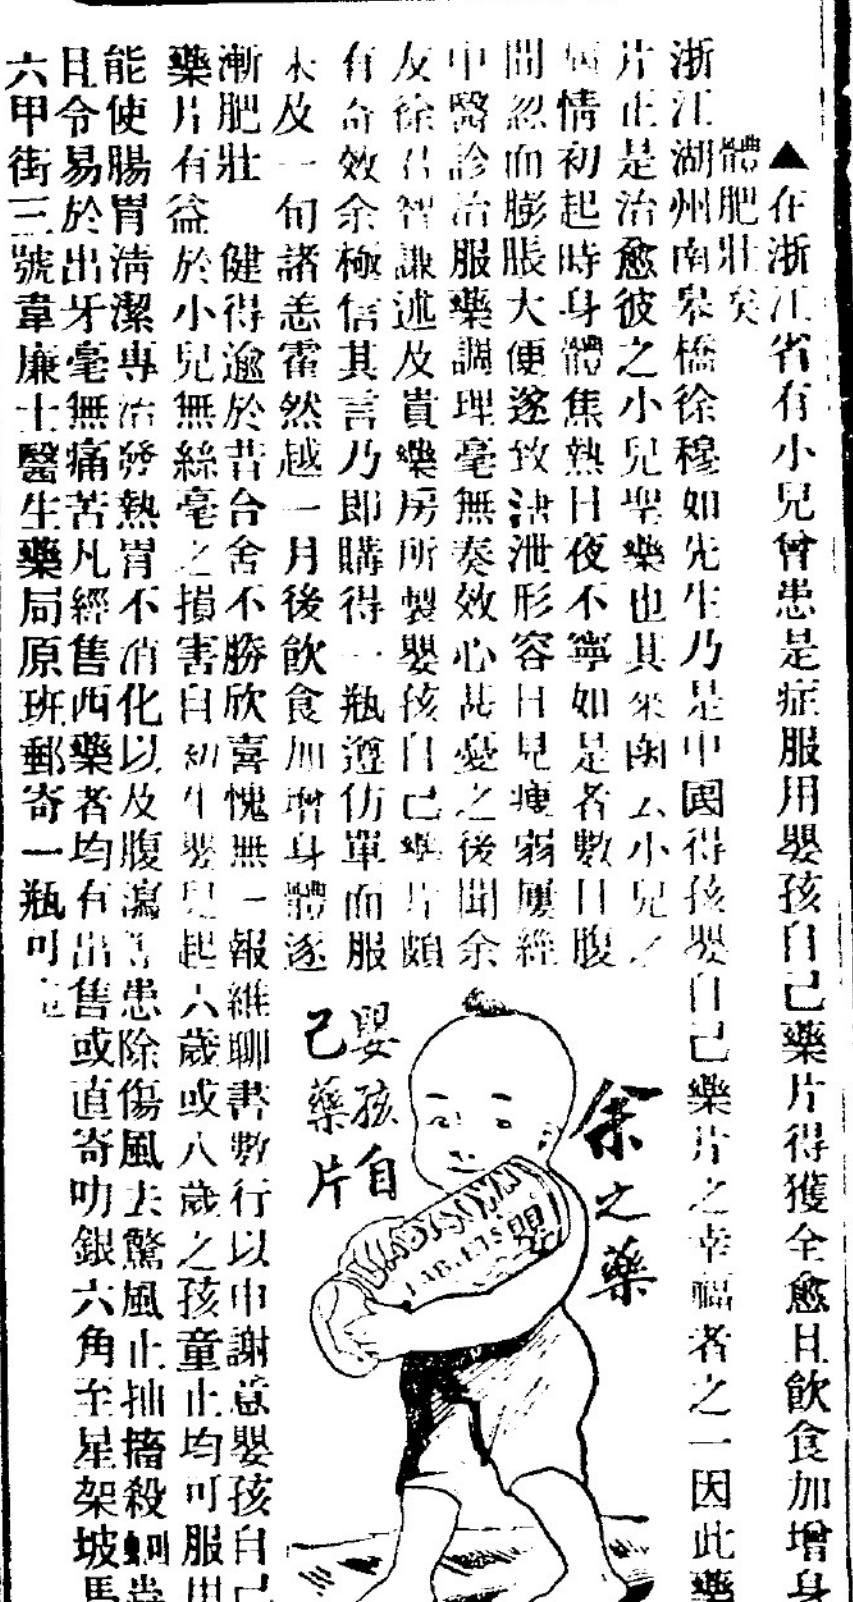 ▲在浙江省有小兒曾患是症服用嬰孩自己藥片得獲全愈且飲食加增身
體肥壯矣
浙江湖州南皋橋徐穆如先生乃是中國得孩嬰自己藥片之幸福者之一因此藥
片正是治愈彼之小兒聖藥也其來函云小兒之
病情初起時身體焦熱日夜不寧如是者數日腹
間忽而膨脹大便遂致洩泄形容日見瘦弱屢經
中醫診治服藥調理毫無奏效心甚憂之後聞余
友徐君智謙述及貴藥房所製嬰孩自己藥片頗
有奇效余極信其言乃即購得一瓶遵仿單而服
未及一旬諸恙霍然越一月後飲食加增身體逐
漸肥壯 健得逾於昔合舍不勝欣喜愧無一報維聊書數行以申謝意嬰孩自己
藥片有益於小兒無絲毫之損害自初生嬰兒起六歲或八歲之孩童止均可服用
能使腸胃淸潔專治發熱胃不消化以及腹瀉等患除傷風去驚風止抽搐殺蛔
且令易於出牙毫無痛苦凡經售西藥者均有出售或直寄叻銀六角至星架坡馬
六甲街三號韋廉士醫生藥局原班郵寄一瓶可也
余之藥
嬰孩自
己藥片
BABYSOWN
TABLETS